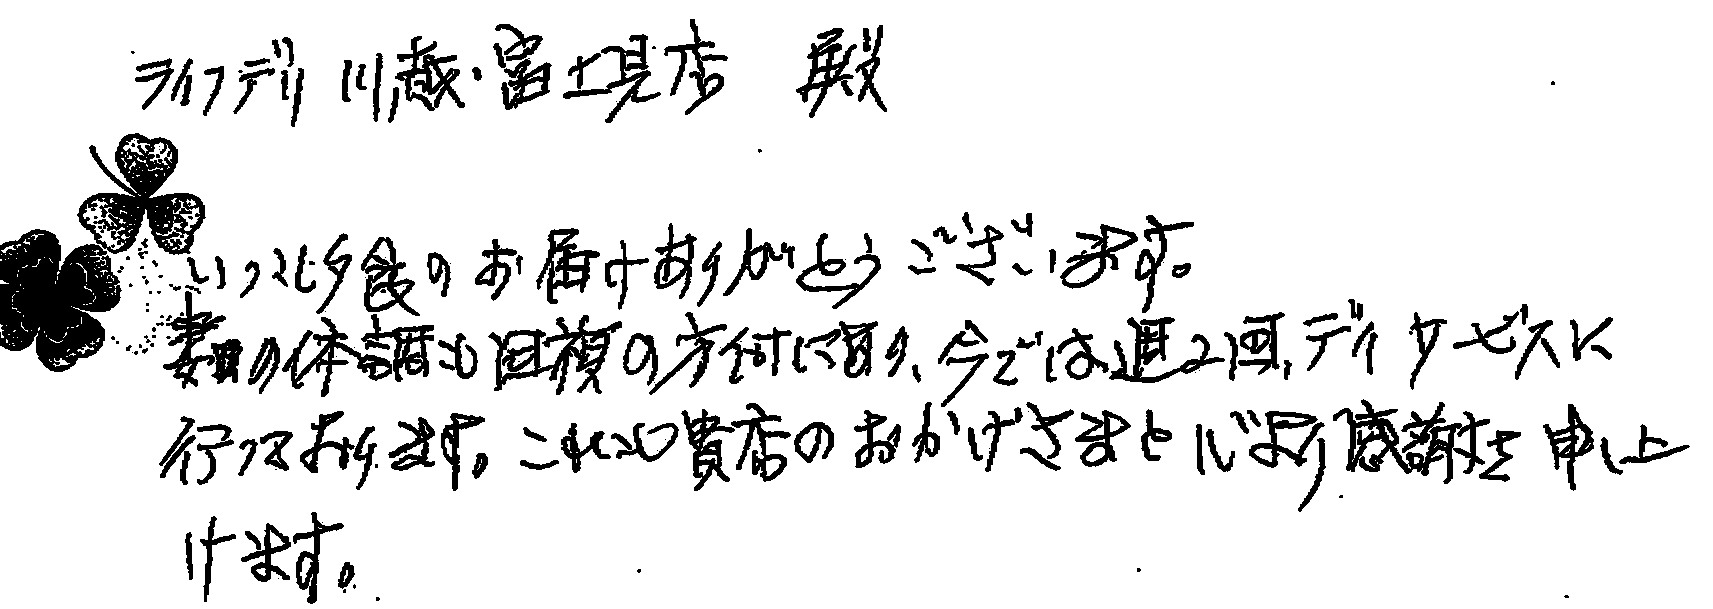 ライフデリ 川越・富士見店 殿
いつも夕食のお届けありがとうございます。
妻の体調も回復の方向に向い、今では週2回、デイサービスに
行っております。これも貴店のおかげさまと心より感謝を申し上
げます。